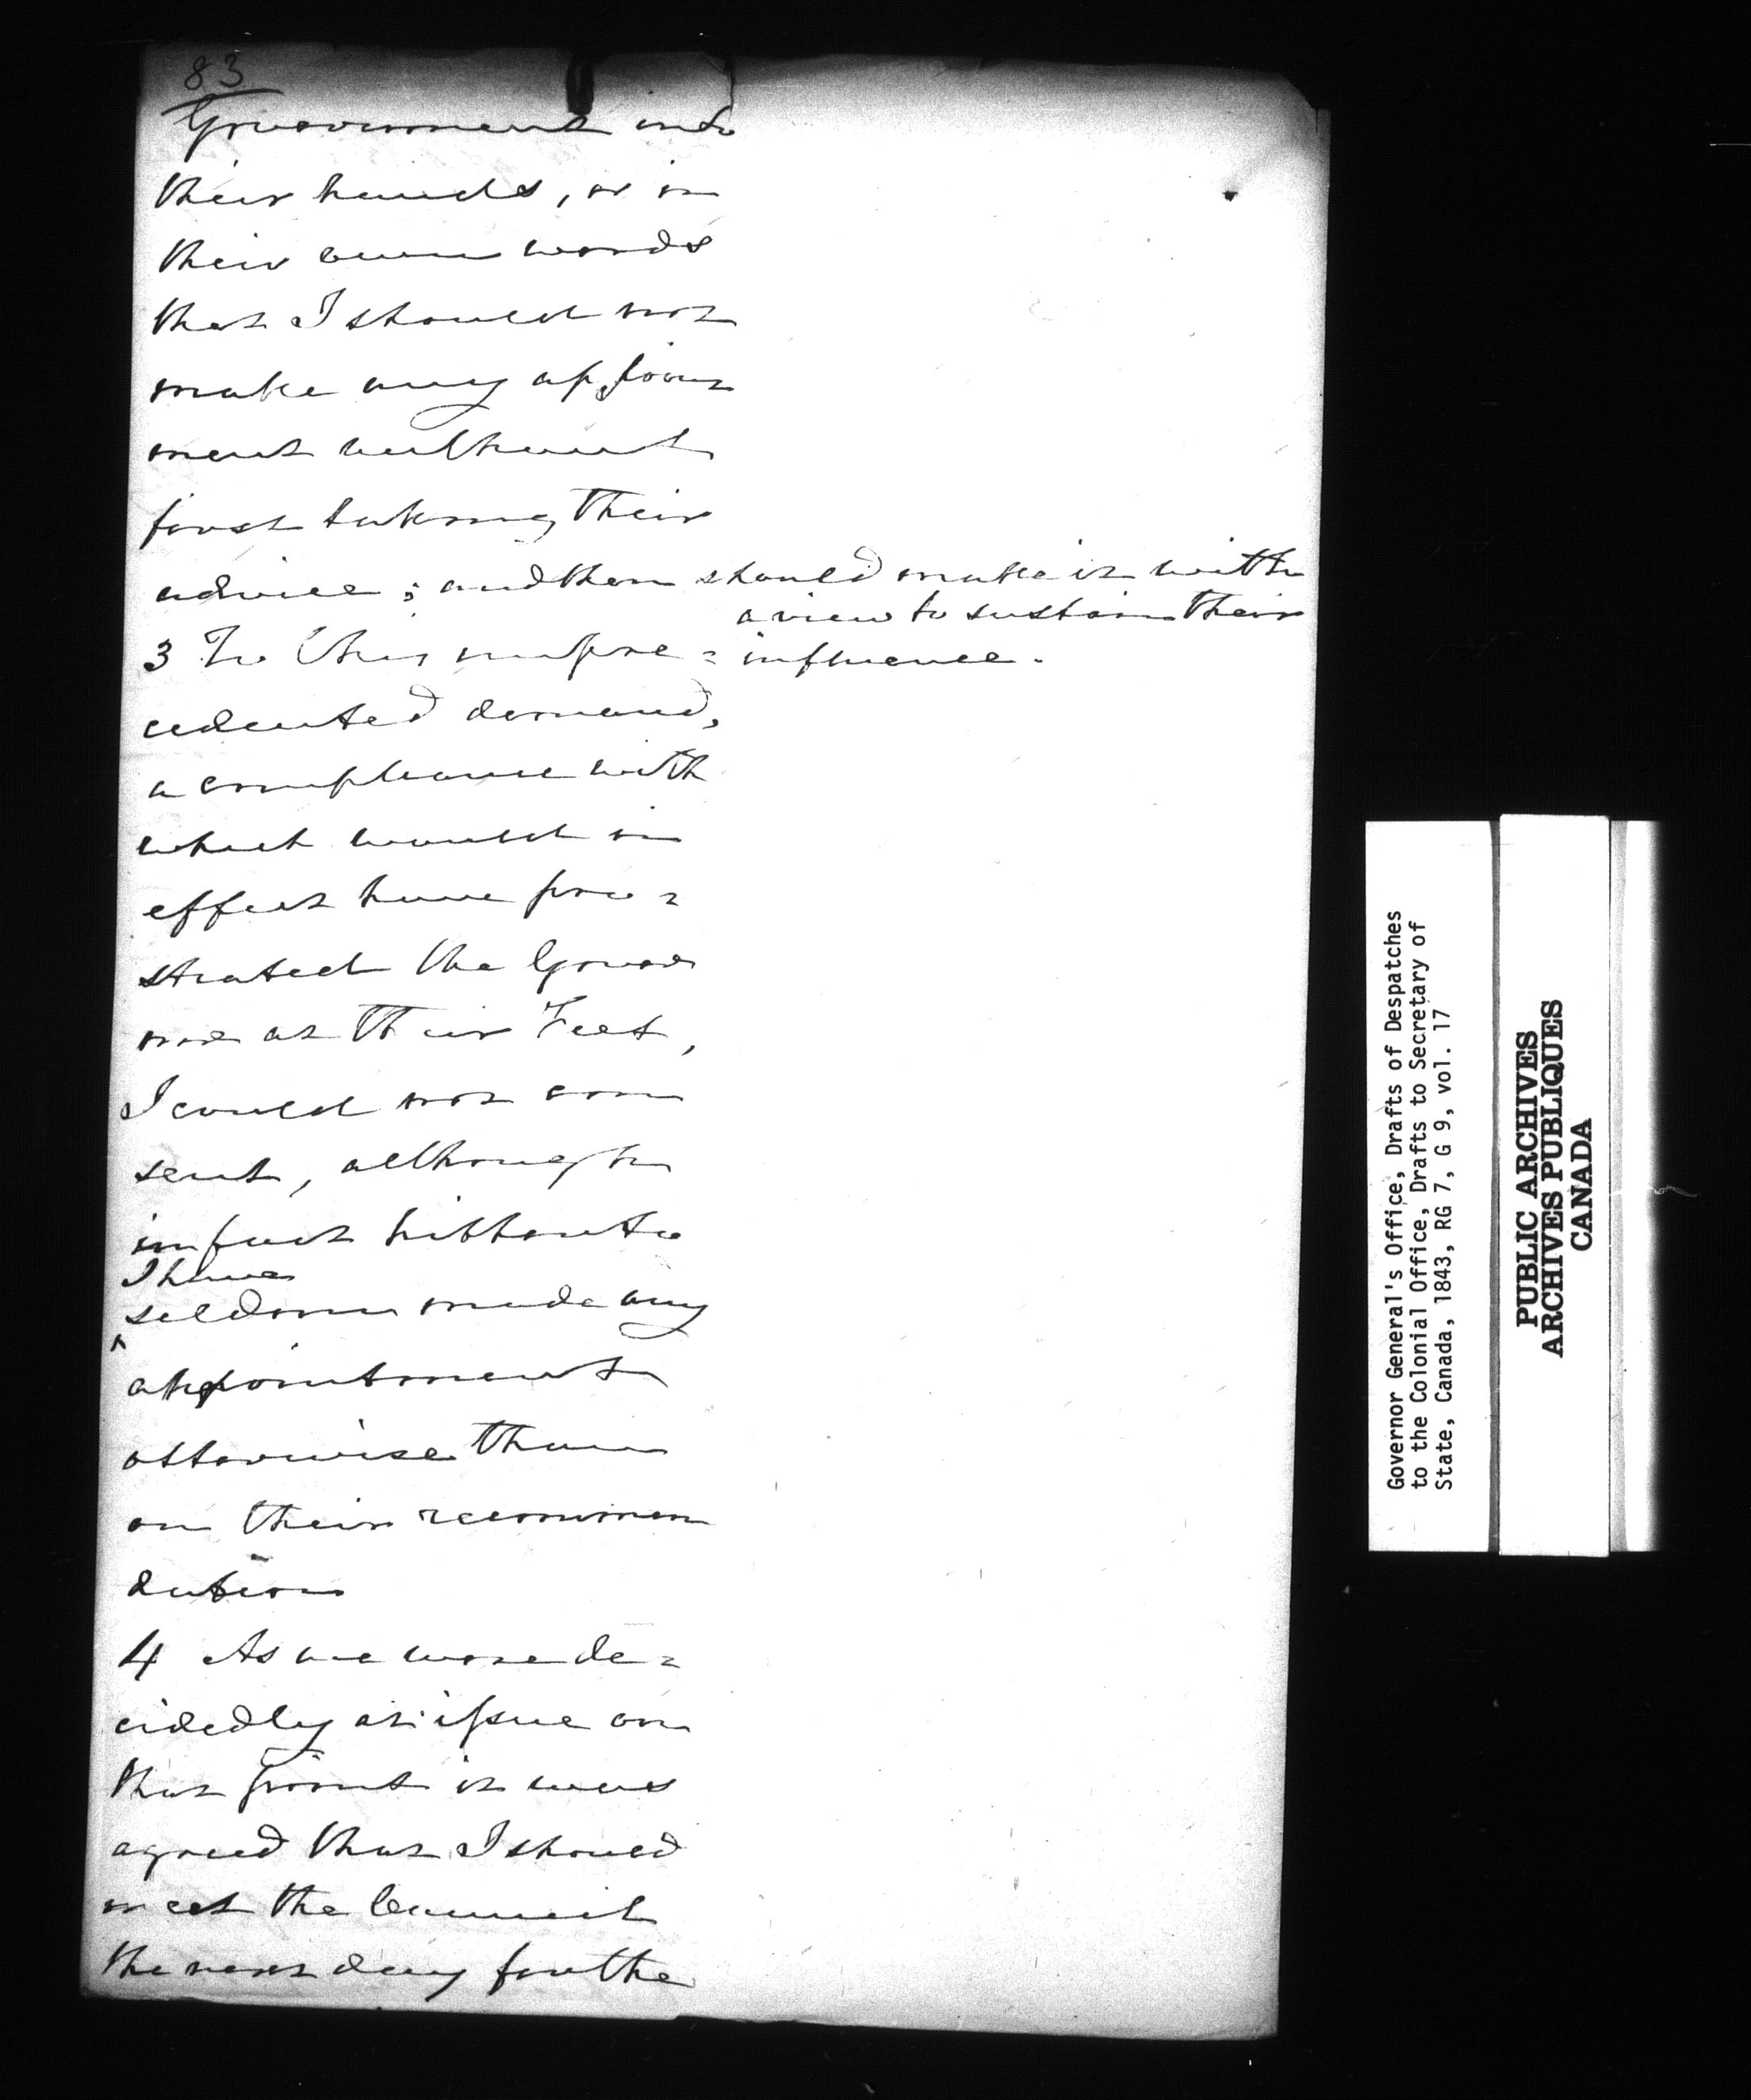 83
Government into
their hands, or in
their own words
that I should not
make any appoint
ment without
first taking their
advice; and then should make it with
a view to sustain their
influence.
3 To this unpre=
cedented demand,
a compliance with
which would in
effect have pro=
strated the Gover
nor at their Feet,
I could not con
sent, although
in fact hitherto
I have
^ seldom made any
appointment
otherwise than
on their recommen
dation
4 As we were de=
cidedly at issue on
that point it was
agreed that I should
meet the Council
the next day for the
Governor General's Office, Drafts of Despatches
to the Colonial Office, Drafts to Secretary of
State, Canada, 1843, RG 7, G 9, vol. 17
PUBLIC ARCHIVES
ARCHIVES PUBLIQUES
CANADA